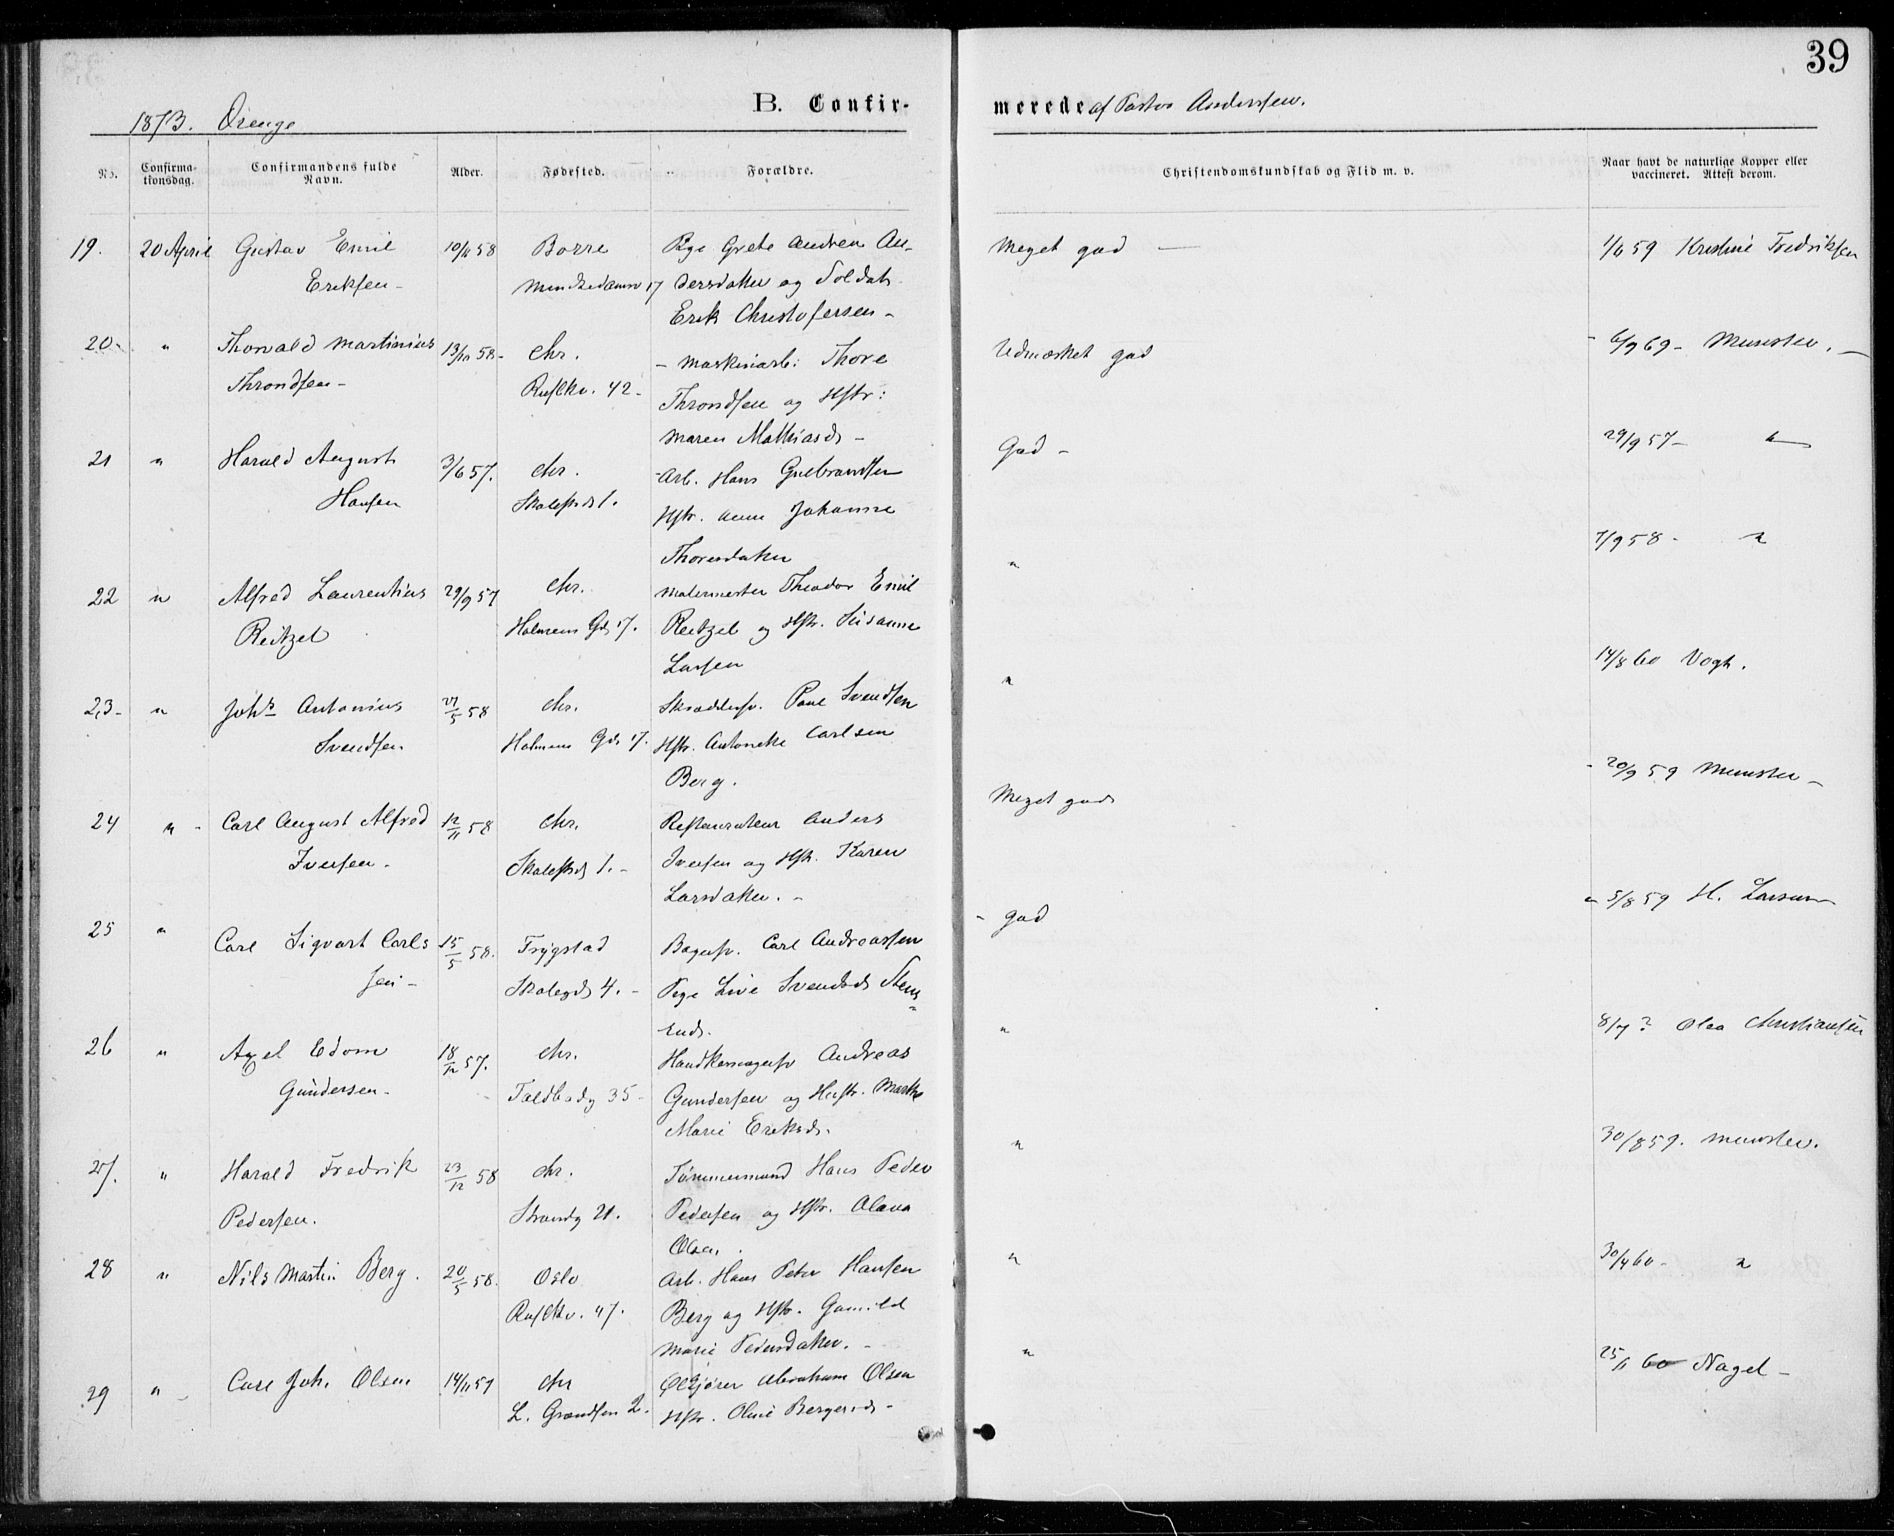 39
1873. Drenge
B. Confirmerede af Pastor Anderssen.
No. Confirmationsdag. Confirmandens fulde Navn. Alder. Fødested. Forældre. Christendomskundskab og Flid m. v. Naar havt de naturlige Kopper eller vaccineret. Attest derom.
19. 20 April Gustav Emil 10/11 58 Borre Pige Grete Andrea An- Meget god 59 Kristine Fredriksen
Eriksen - 17 dersdatter og Soldat
Erik Christofersen -
20 " Thorvald Martinius 13/10 58 - Chr. - Maskinarb: Thore Udmærket god 6/9 69 - Munster. -
Throndsen - Ruselkv. 42 - Throndsen og Hstr:
Maren Mathiasd. -
21 " Harald August 3/6 57. Chr. Arb. Hans Gulbrandsen God - 29/9 57 - "
Hansen 1. Hstr. Anne Johanne
Thoresdatter
22 " Alfred Laurentius 29/9 57 Chr. Malermester Theodor Emil " 7/9 58 - "
Reitzel Holmens Gd. 17. Reitzel og Hstr. Susanne
Larsen
23 - " Joh. Antonius 27/5 58 Chr. Paul Svendsen " 14/8 60 Vogt.
Svendsen Holmens Gd. 17. Hstr. Carlsen
Berg.
24 " - Carl August Alfred 12/11 58 Chr. Restaurateur Anders Meget god 20/9 59 Munster -
Iversen - 1. - Iversen og Hstr. Karen
Larsdatter. -
25 " Carl Sigvart Carls 15/5 58. Trygstad Carl Andreassen - god 5/8 59 H. Larsen
sen - 4. - Pige Live Svendsd. Stens
"
rud.
26 " Axel Edom 18/12 57. Chr. Andreas " 8/7 ? Olea Christiansen
Gundersen - 35 - Gundersen og Hustr. Marthe
Marie Eriksd.
27. " Harald Fredrik 23/12 58 Chr. Tømmermand Hans Peder " 30/8 59. Munster.
Pedersen. Strandg 21. Pedersen og Hstr. Olava
Olsen.
28 " Nils Martin Berg. 20/5 58. Oslo Arb. Hans Peter Hansen " 30/4 60 - "
Ruselkv. 47. Berg og Hstr. Gunild
Marie Pedersdatter. -
29 " - Carl Joh. Olsen 14/11 57 Chr Abraham Olsen " 25/1 60 Nagel -
L. Grændsen 2. Hstr. Oline Bergersd. -